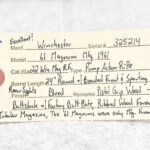 Excellent!
Manf. Winchester Serial No. 325214
Model 61 Magnum Mfg. 1961
Cal. .22 Win. Mag. R.F. Action Pump Action Rifle
Barrel Length 24" Round - Beaded Front & Sporting
Rear Sights Blued Pistol Grip Wood -
Buttstock w/ Factory Butt Plate, Ribbed Wood Forearm
Tubular Magazine, The 61 Magnums were only Mfg. From